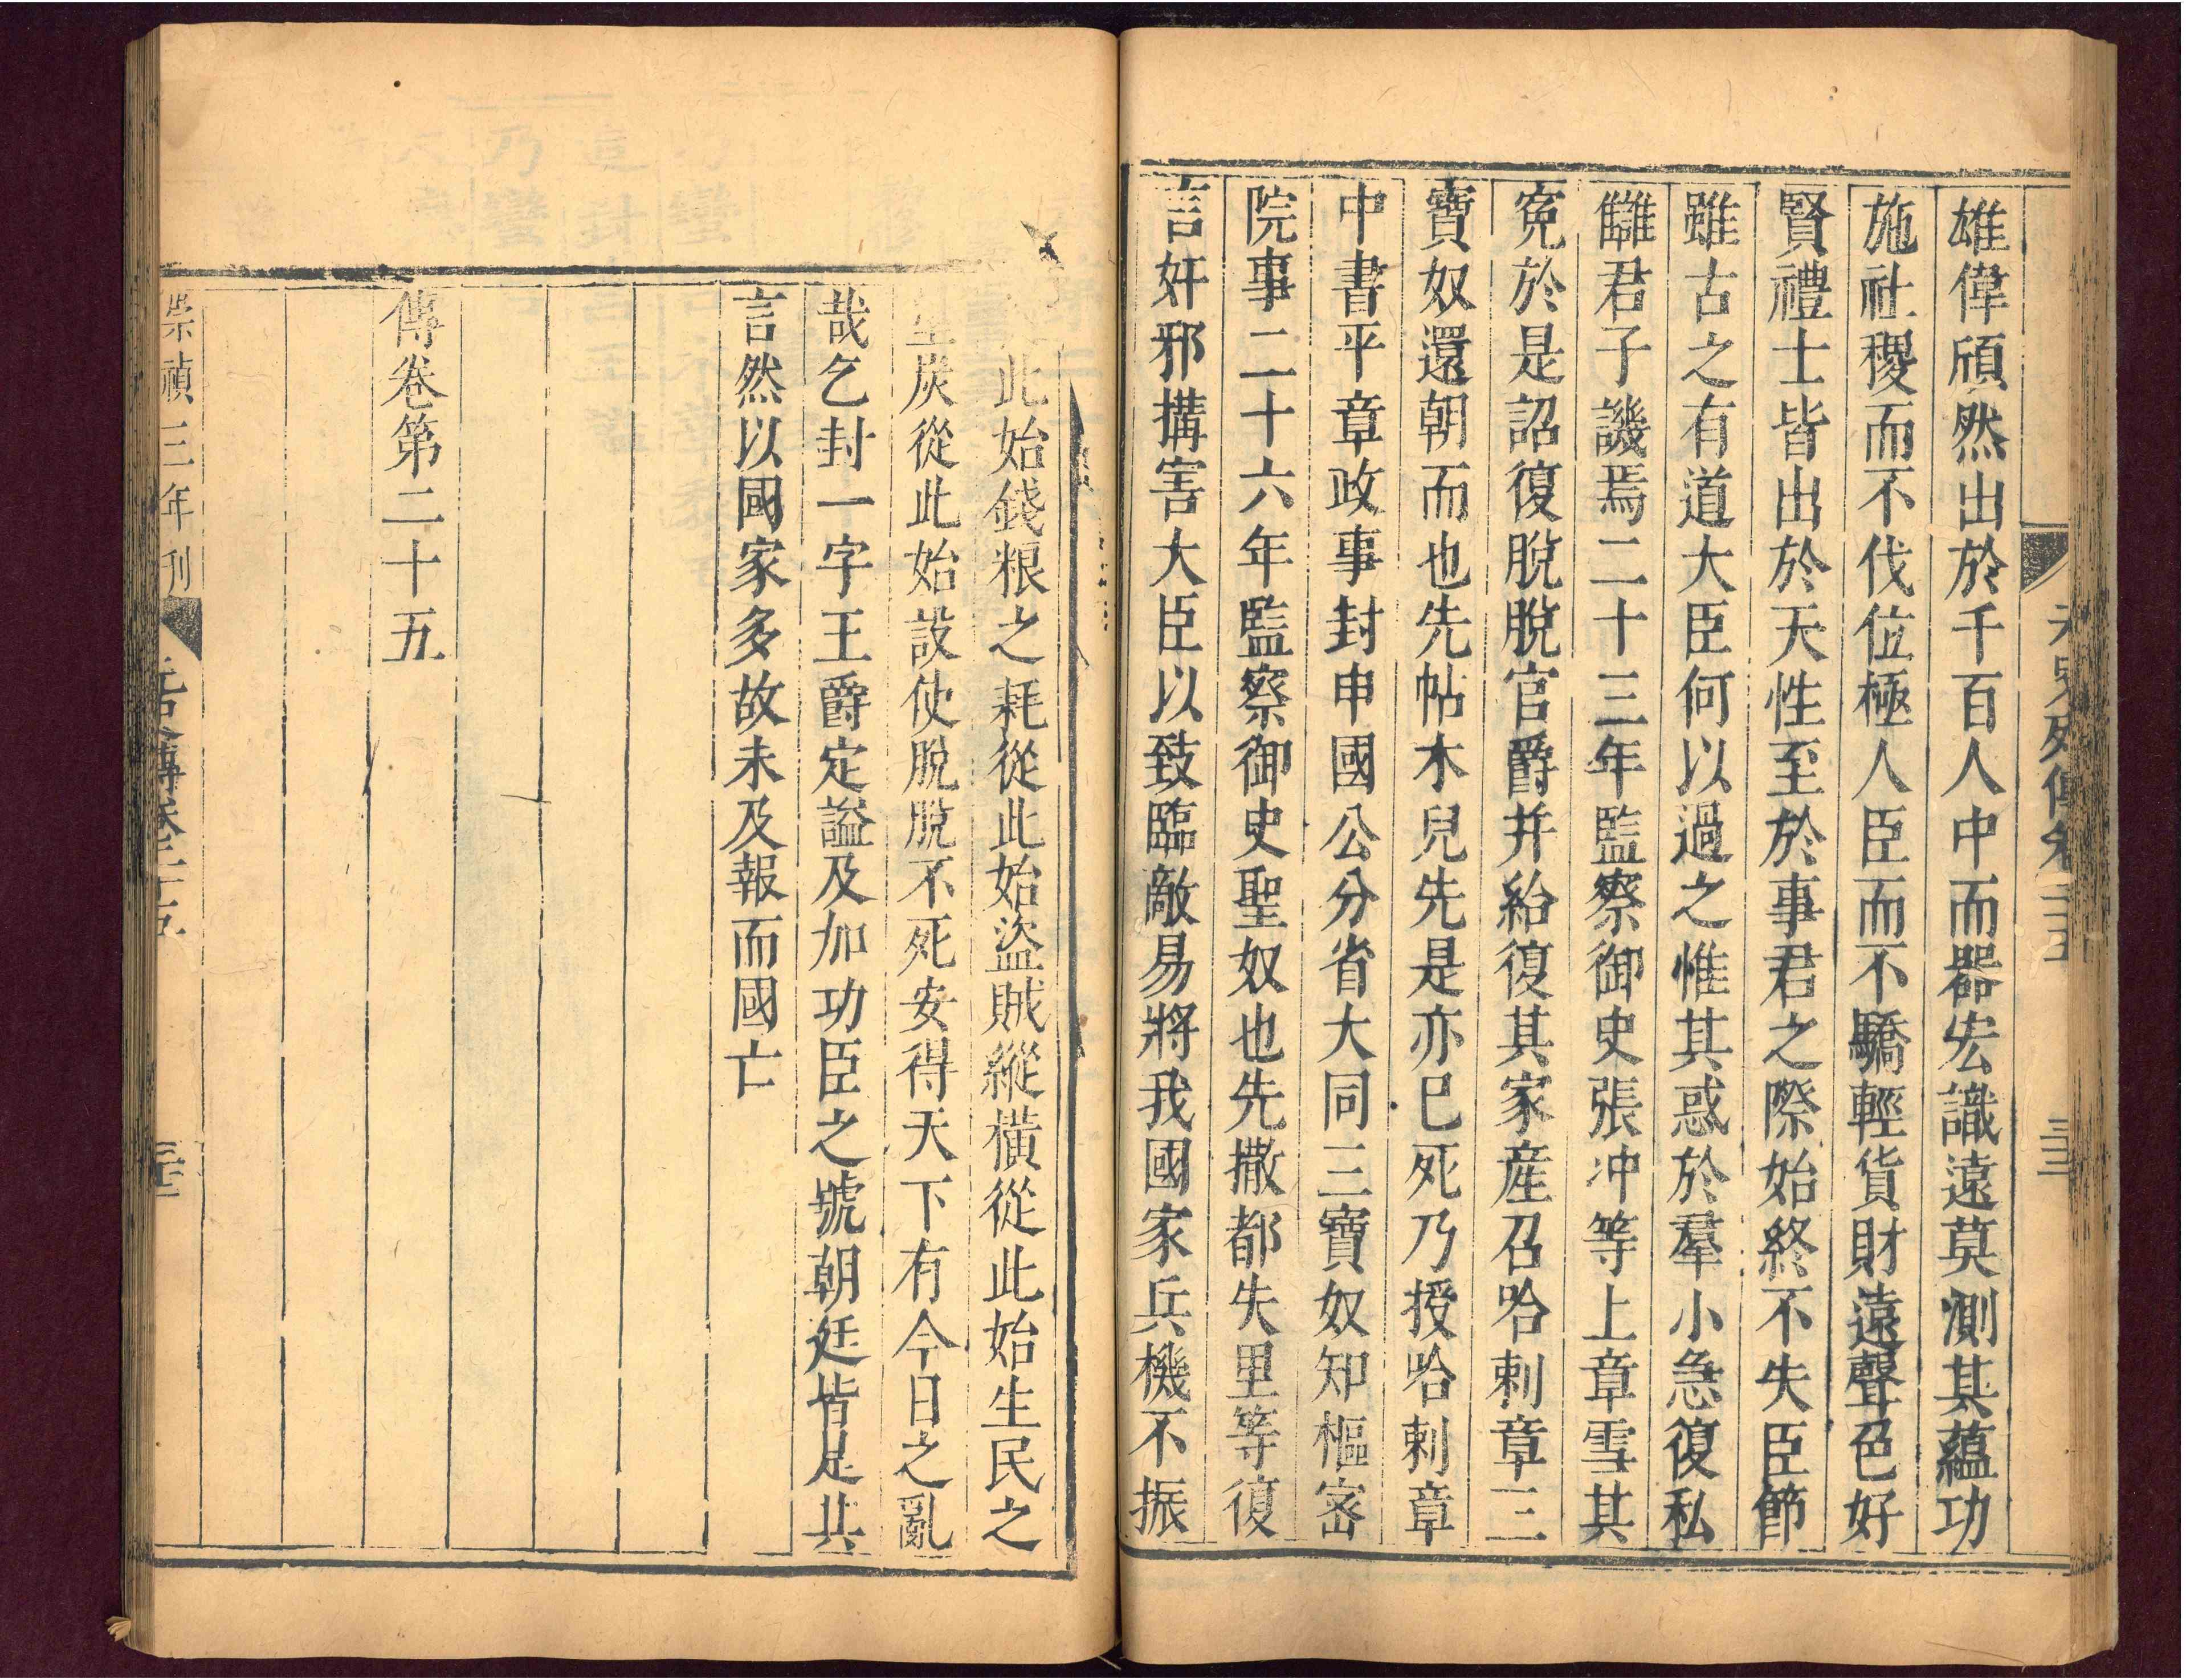 元史列傳卷二十五
三十三
雄偉頎然出於千百人中而器宏識遠莫測其蘊功
施社稷而不伐位極人臣而不驕輕貨財遠聲色好
賢禮士皆出於天性至於事君之際始終不失臣節
雖古之有道大臣何以過之惟其惑於羣小急復私
讎君子譏焉二十三年監察御史張冲等上章雪其
寃於是詔復脫脫官爵并給復其家産召哈剌章三
寶奴還朝而也先帖木兒先是亦巳死乃授哈剌章
中書平章政事封申國公分省大同三寶奴知樞宻
院事二十六年監察御史聖奴也先撒都失里等復
言奸邪搆害大臣以致臨敵易將我國家兵機不振
此始錢粮之耗從此始盜賊縱橫從此始生民之
塗炭從此始設使脫脫不死安得天下有今日之亂
哉乞封一字王爵定謚及加功臣之號朝廷皆是其
言然以國家多故未及報而國亡
傳卷第二十五
崇禎三年刊
元史傳卷二十五